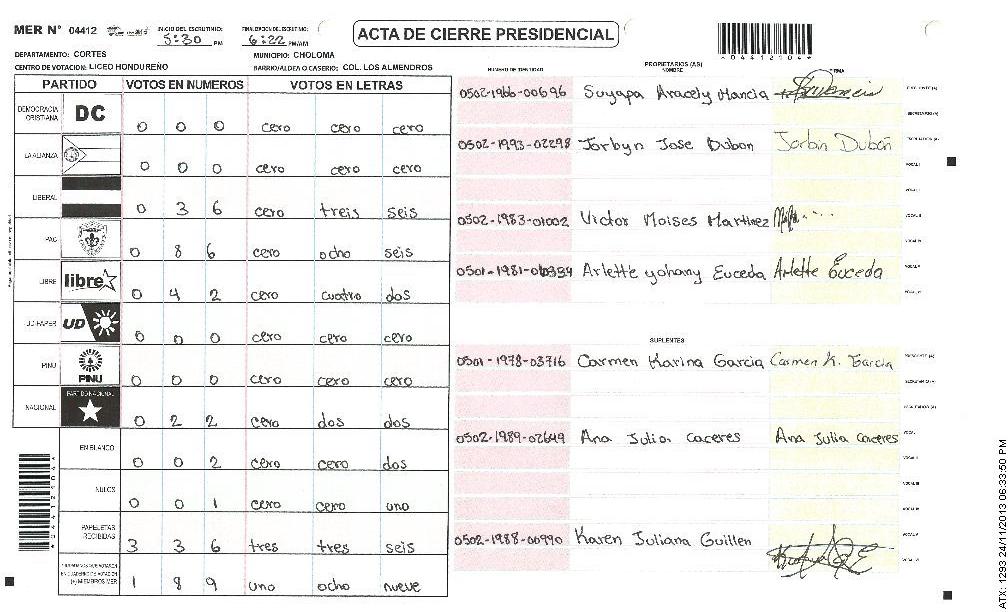 MER N° 04412
INICIO DEL ESCRUTINIO: 5:30 PM
FINALIZACION DEL ESCRUTINIO: 6:22 PM/AM
ACTA DE CIERRE PRESIDENCIAL
*04412104*
DEPARTAMENTO: CORTES
MUNICIPIO: CHOLOMA
CENTRO DE VOTACION: LICEO HONDUREÑO
BARRIO/ALDEA O CASERIO: COL. LOS ALMENDROS
PARTIDO VOTOS EN NUMEROS VOTOS EN LETRAS
DEMOCRACIA CRISTIANA DC 0 0 0 cero cero cero
LA ALIANZA 0 0 0 cero cero cero
LIBERAL 0 3 6 cero treis seis
PAC 0 8 6 cero ocho seis
LIBRE libre 0 4 2 cero cuatro dos
UD-FAPER UD 0 0 0 cero cero cero
PINU PINU 0 0 0 cero cero cero
NACIONAL PARTIDO NACIONAL 0 2 2 cero dos dos
EN BLANCO 0 0 2 cero cero dos
NULOS 0 0 1 cero cero uno
PAPELETAS RECIBIDAS 3 3 6 tres tres seis
(+) MIEMBROS MER 1 8 9 uno ocho nueve
NUMERO DE IDENTIDAD
PROPIETARIOS (AS)
NOMBRE
FIRMA
0502-1966-00696 Suyapa Aracely Mancia
0502-1993-02298 Jorbyn Jose Dubon Jorbin Dubón
0502-1983-01002 Victor Moises Martinez
0501-1981-00334 Arlette yohany Euceda Arlette Euceda
SUPLENTES
0501-1978-03716 Carmen Karina Garcia Carmen K. Garcia
0502-1989-02649 Ana Julia caceres Ana Julia caceres
0502-1988-00990 Karen Juliana Guillen
ATX: 1293 24/11/2013 06:33:50 PM